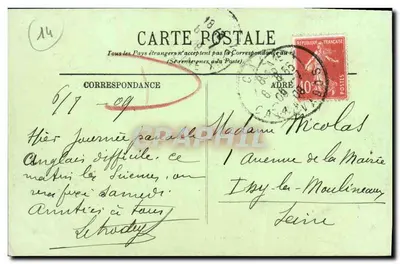 14
CARTE POSTALE
Tous les Pays étrangers n'acceptent pas la Correspondance au
(Se renseigner à la Poste)
CORRESPONDANCE
ADRE
RÉPUBLIQUE FRANÇAISE
10
POSTES
6/7 09
Hier journée
Anglais difficile. Ce
matin les Sciences, on
sera fixé Samedi.
Amitiés à tous
Madame Nicolas
1 Avenue de la Mairie
Issy-les-Moulineaux
Seine
CALVADOS